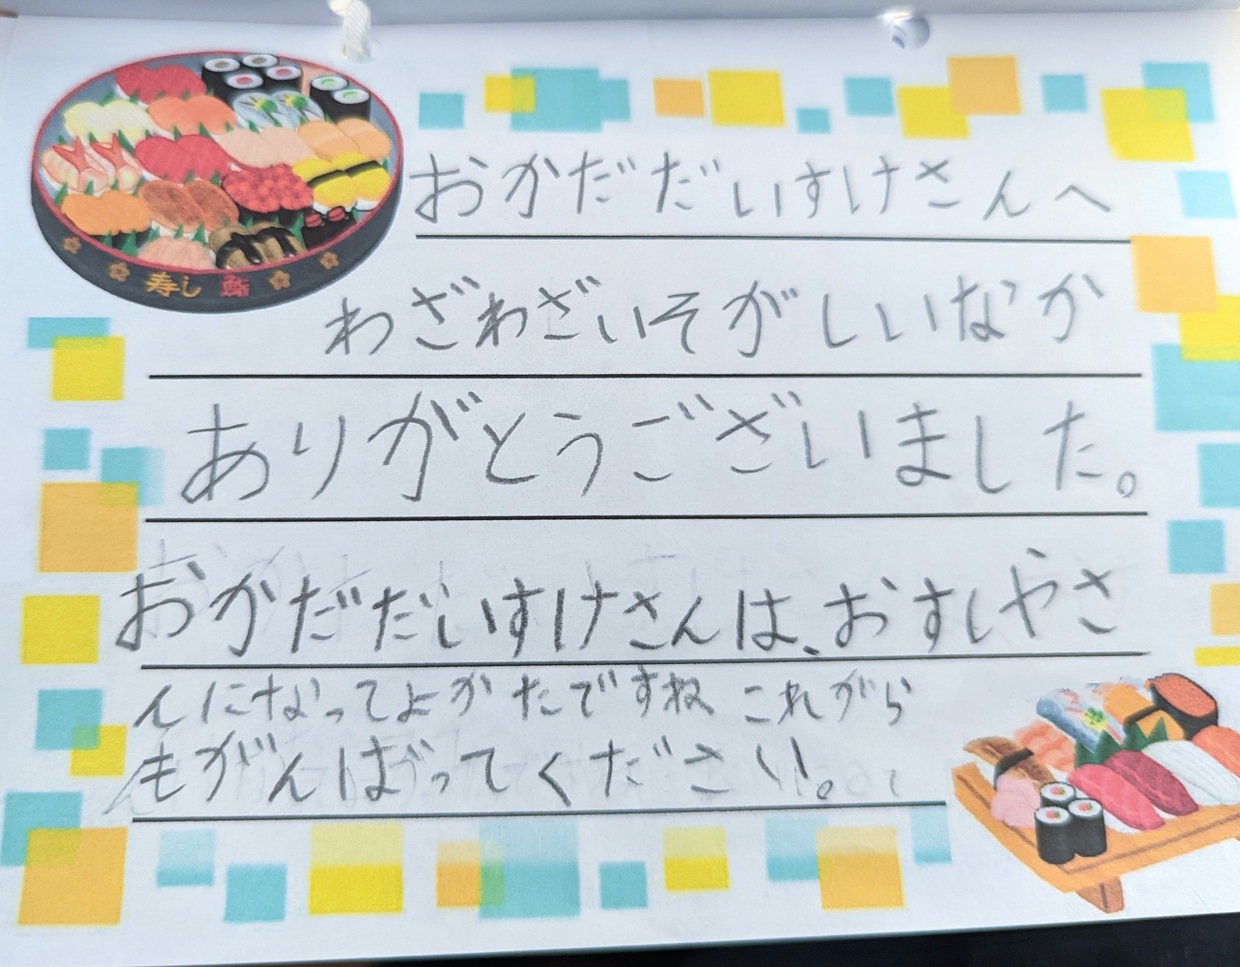 寿し 鮨
おかだだいすけさんへ
わざわざいそがしいなか
ありがとうございました。
おかだだいすけさんは、おすしやさ
んになってよかたですね これがら
もがんばってください。